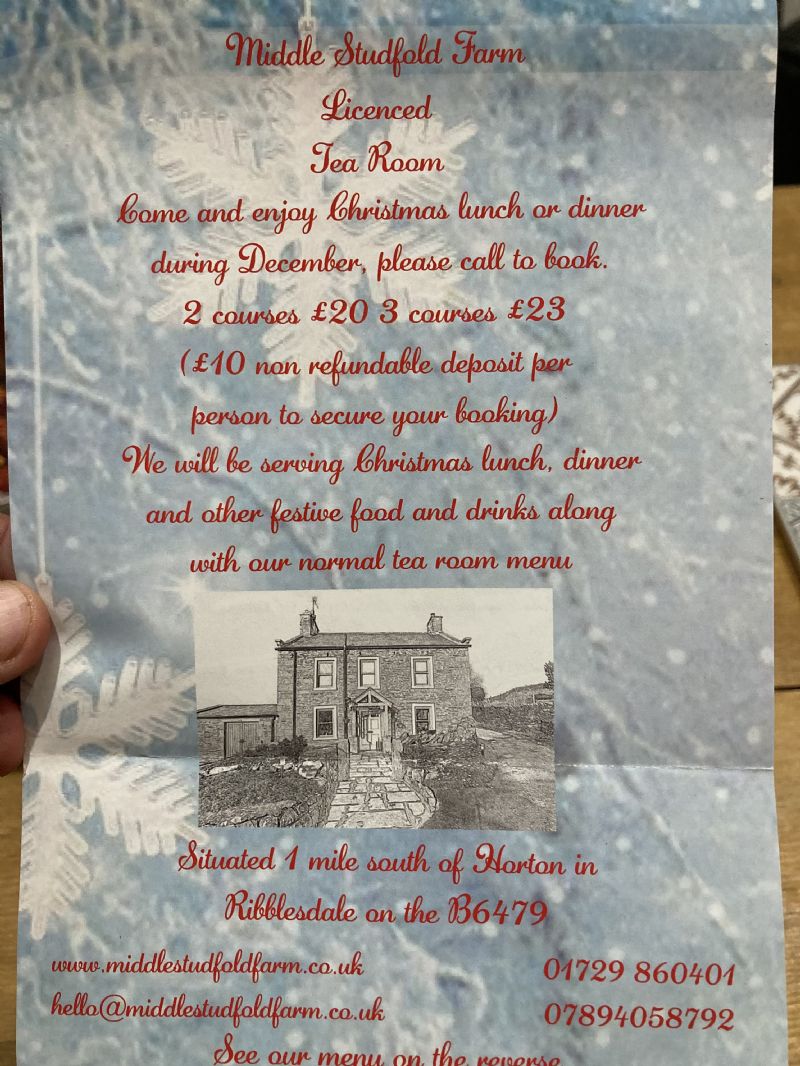 Middle Studfold Farm
Licenced
Tea Room
Come and enjoy Christmas lunch or dinner
during December, please call to book.
2 courses £20 3 courses £23
(£10 non refundable deposit per
person to secure your booking)
We will be serving Christmas lunch, dinner
and other festive food and drinks along
with our normal tea room menu
Situated 1 mile south of Horton in
Ribblesdale on the B6479
www.middlestudfoldfarm.co.uk 01729 860401
hello@middlestudfoldfarm.co.uk 07894058792
See our menu on the reverse